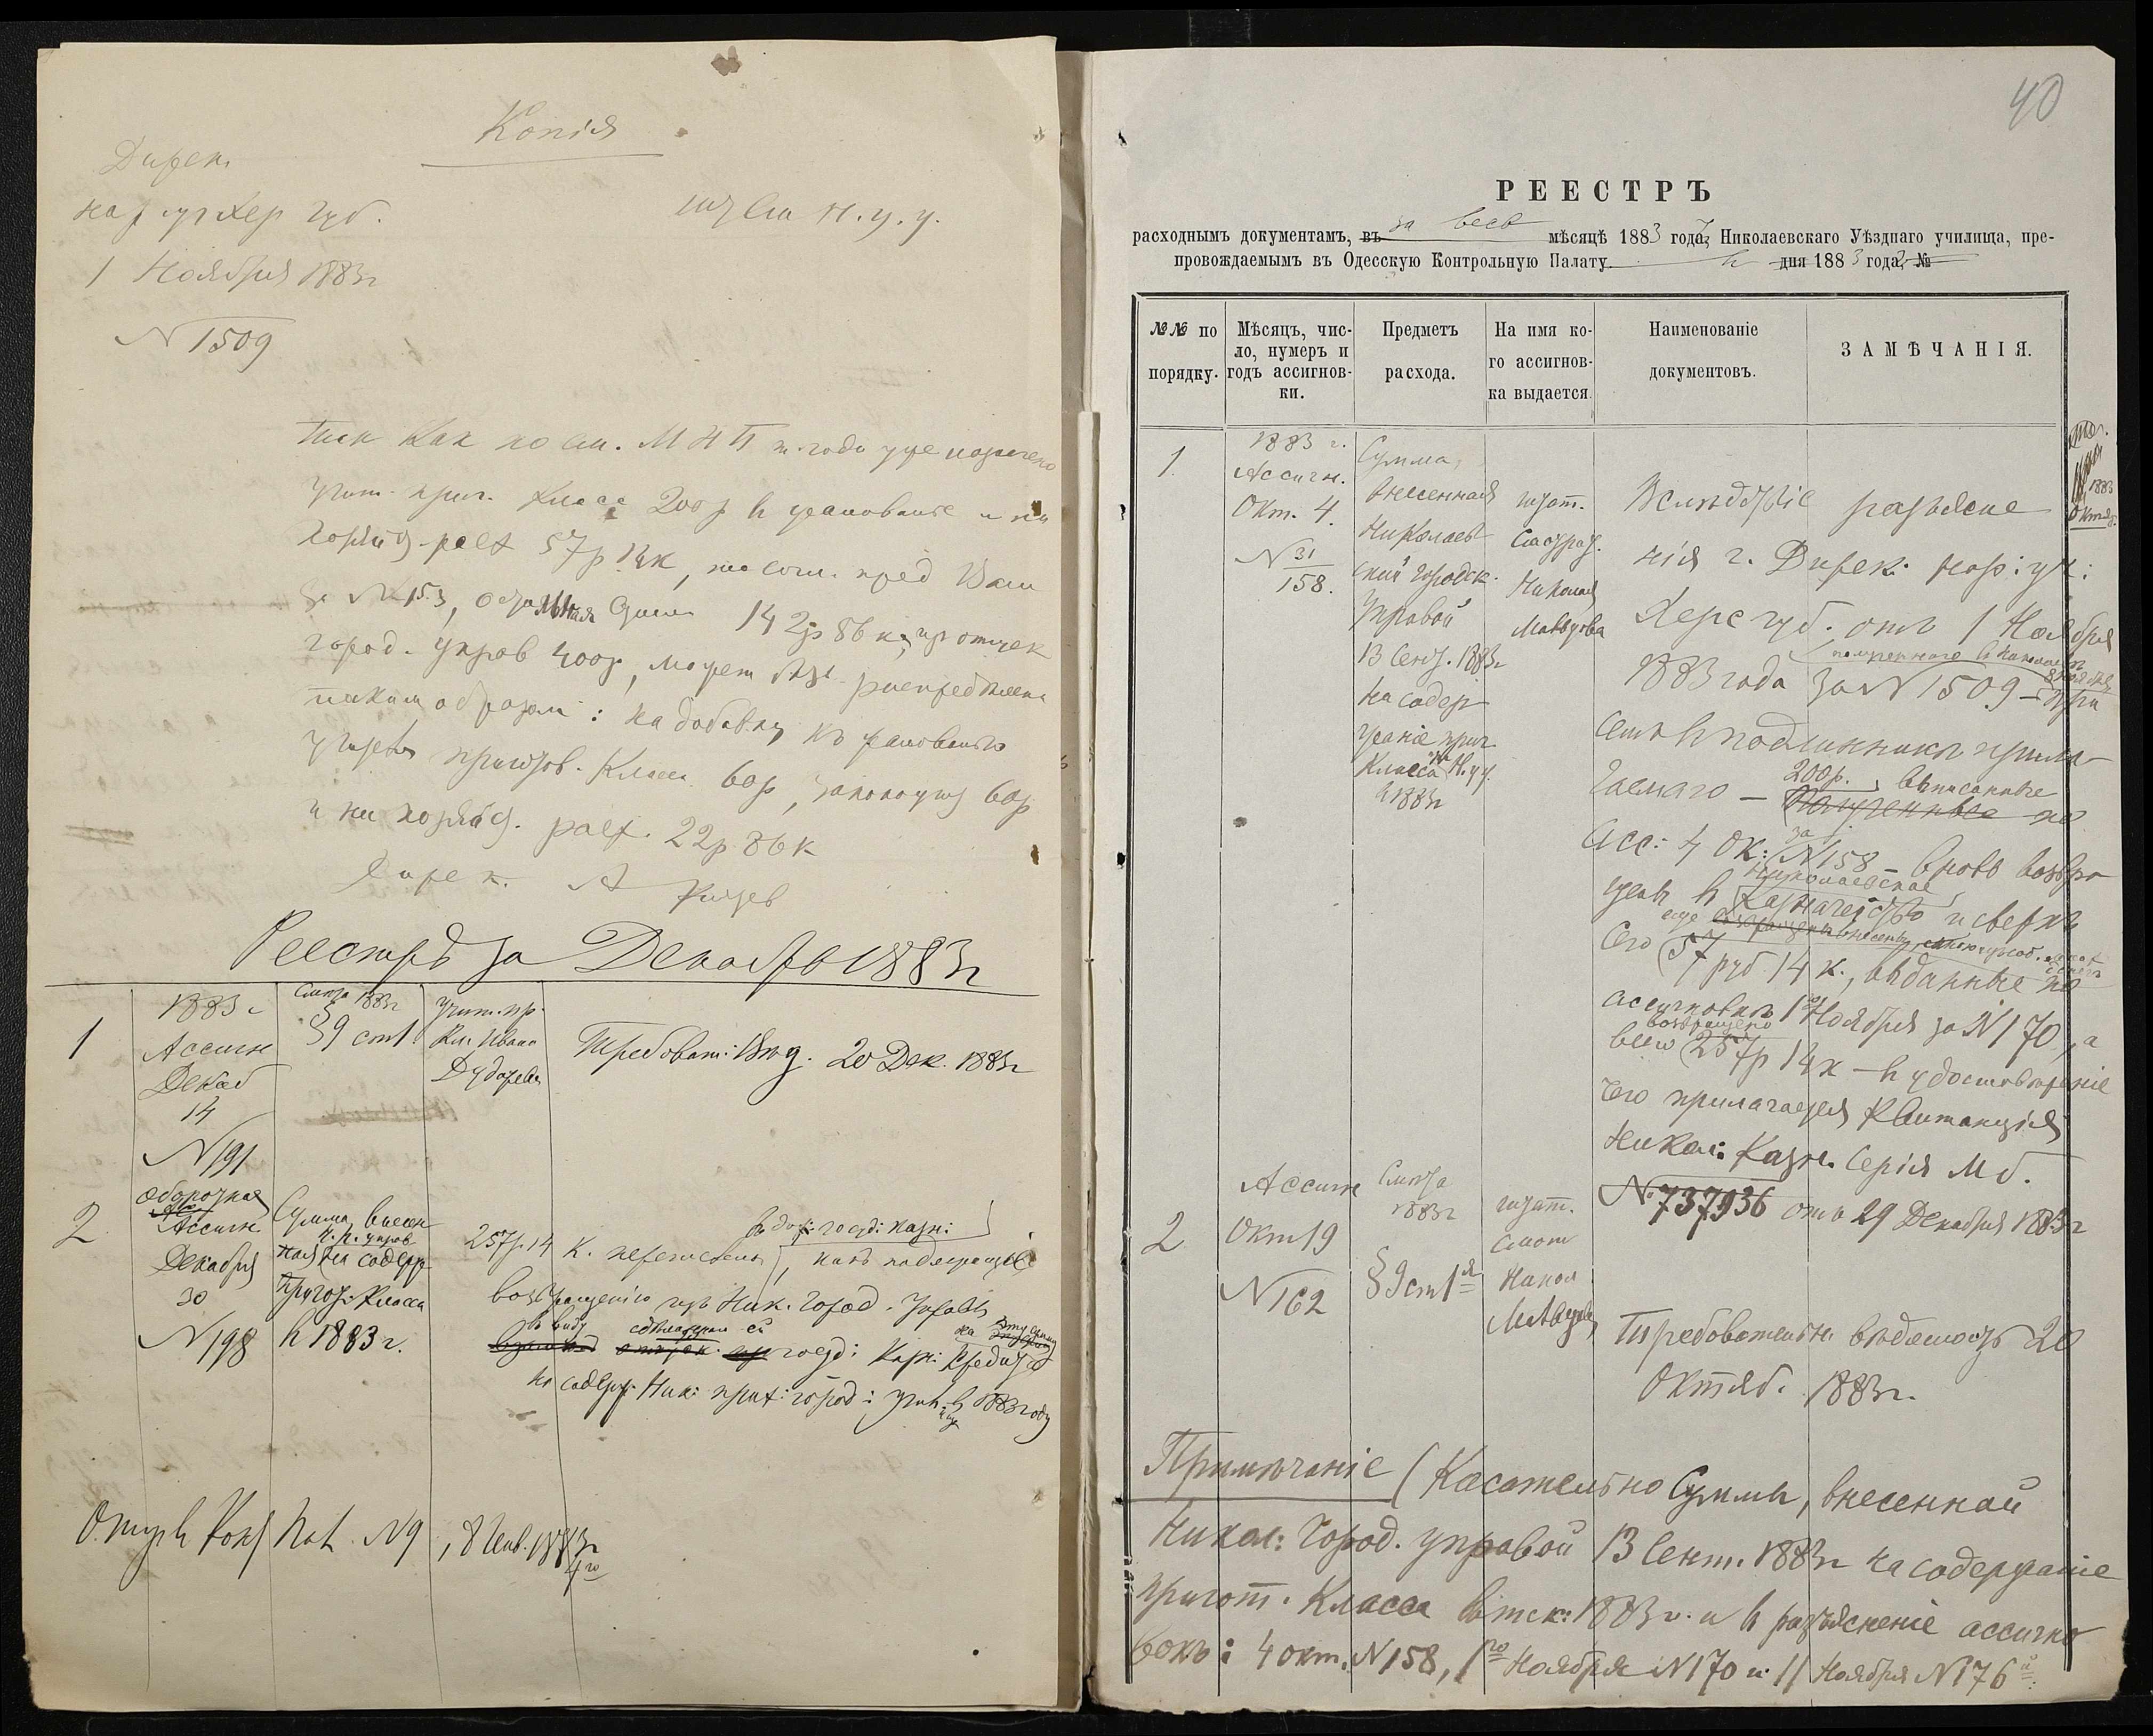 Копія
Дирек.
нар уч Хер губ.
шт См Н. у. у.
1 Ноября 1883 г
N 1509
Так как по см. М Н П т. года уже назначено
учит. приг. класса 200 р в жалованье и на
хозяйс. расх 57 р 14 к, то согл. пред Ваш
за N 153, остальная сумма 142 р 86 к из отпуск
город. управ 400 р, может быть распределена
таким образом: на добавку къ жалованью
учителя пригот. класса 60 р, законоучи 60 р
и на хозяйс. расх. 22 р 86 к
Дирек. А
Реестръ за Декабрь 1883 г
1
1883 г
Ассигн
Декаб
14
N 191
Смета 1883 г
§ 9 ст 1
учит. пр.
кл. Ивана
Требоват: вед. 20 Дек. 1883 г
2
Оборотная
Ассигн
Декабря
30
N 198
Сумма внесен
н. г. управ
ная на содерж
Пригот: класса
в 1883 г.
в дох: госуд: казн:
257 р 14 к. перечислены, какъ подлежащія
возвращенію изъ Ник. город. Управы
въ виду сдѣланнаго ей
госуд: Кредита
на содерж: Ник: приг: город: учил. в 1883 году
Отпр в Конт Пал. N 9, 8 Янв. 1884 г
40
РЕЕСТРЪ
расходнымъ документамъ, въ за весь мѣсяцѣ 1883 года, Николаевскаго Уѣзднаго училища, пре-
провождаемымъ въ Одесскую Контрольную Палату дня 1883 года, №
№№ по порядку.
Мѣсяцъ, чис-
ло, нумеръ и
годъ ассигнов-
ки.
Предметъ
расхода.
На имя ко-
го ассигнов-
ка выдается.
Наименованіе
документовъ.
ЗАМѢЧАНІЯ.
1.
1883 г.
Ассигн.
Окт. 4.
N 31/158.
Сумма,
внесенная
Николаев
ской городск.
Управой
13 Сент. 1883 г
на содер
жаніе приг.
класса Н. у у.
в 1883 г
штат.
Смотрит.
Николая
Вслѣдствіе разъясне
нія г. Дирек: нар: уч:
Херс губ. отъ 1 Ноября
1883 года за N 1509 – при
семъ в подлинникѣ прила-
гаемаго – 200 р. выписанные
по
Асс: 4 Ок: за N 158 – вновь возвра
щены в Николаевское Казначейство и сверхъ
сего 57 руб 14 к., выданные по
ассигновкѣ 1го Ноября за N 170, а
всего возвращено 257 р 14 к – в удостовѣреніе
чего прилагается Квитанція
Никол: Казн. Серія М б.
N 737936 отъ 29 Декабря 1883 г
2
Ассигн
Окт 19
N 162
Смета
1883 г
§ 9 ст 1я
штат.
Смот
Никол
Требовательн. вѣдомость 20
Октяб. 1883 г.
Примѣчаніе (Касательно Суммы, внесенной
Никол: Город. управой 13 Сент. 1883 г на содержаніе
пригот. класса в тек: 1883 г. и в разъясненіе ассигно
вокъ: 4 окт. N 158, 1го Ноября N 170 и 11 Ноября N 176й.